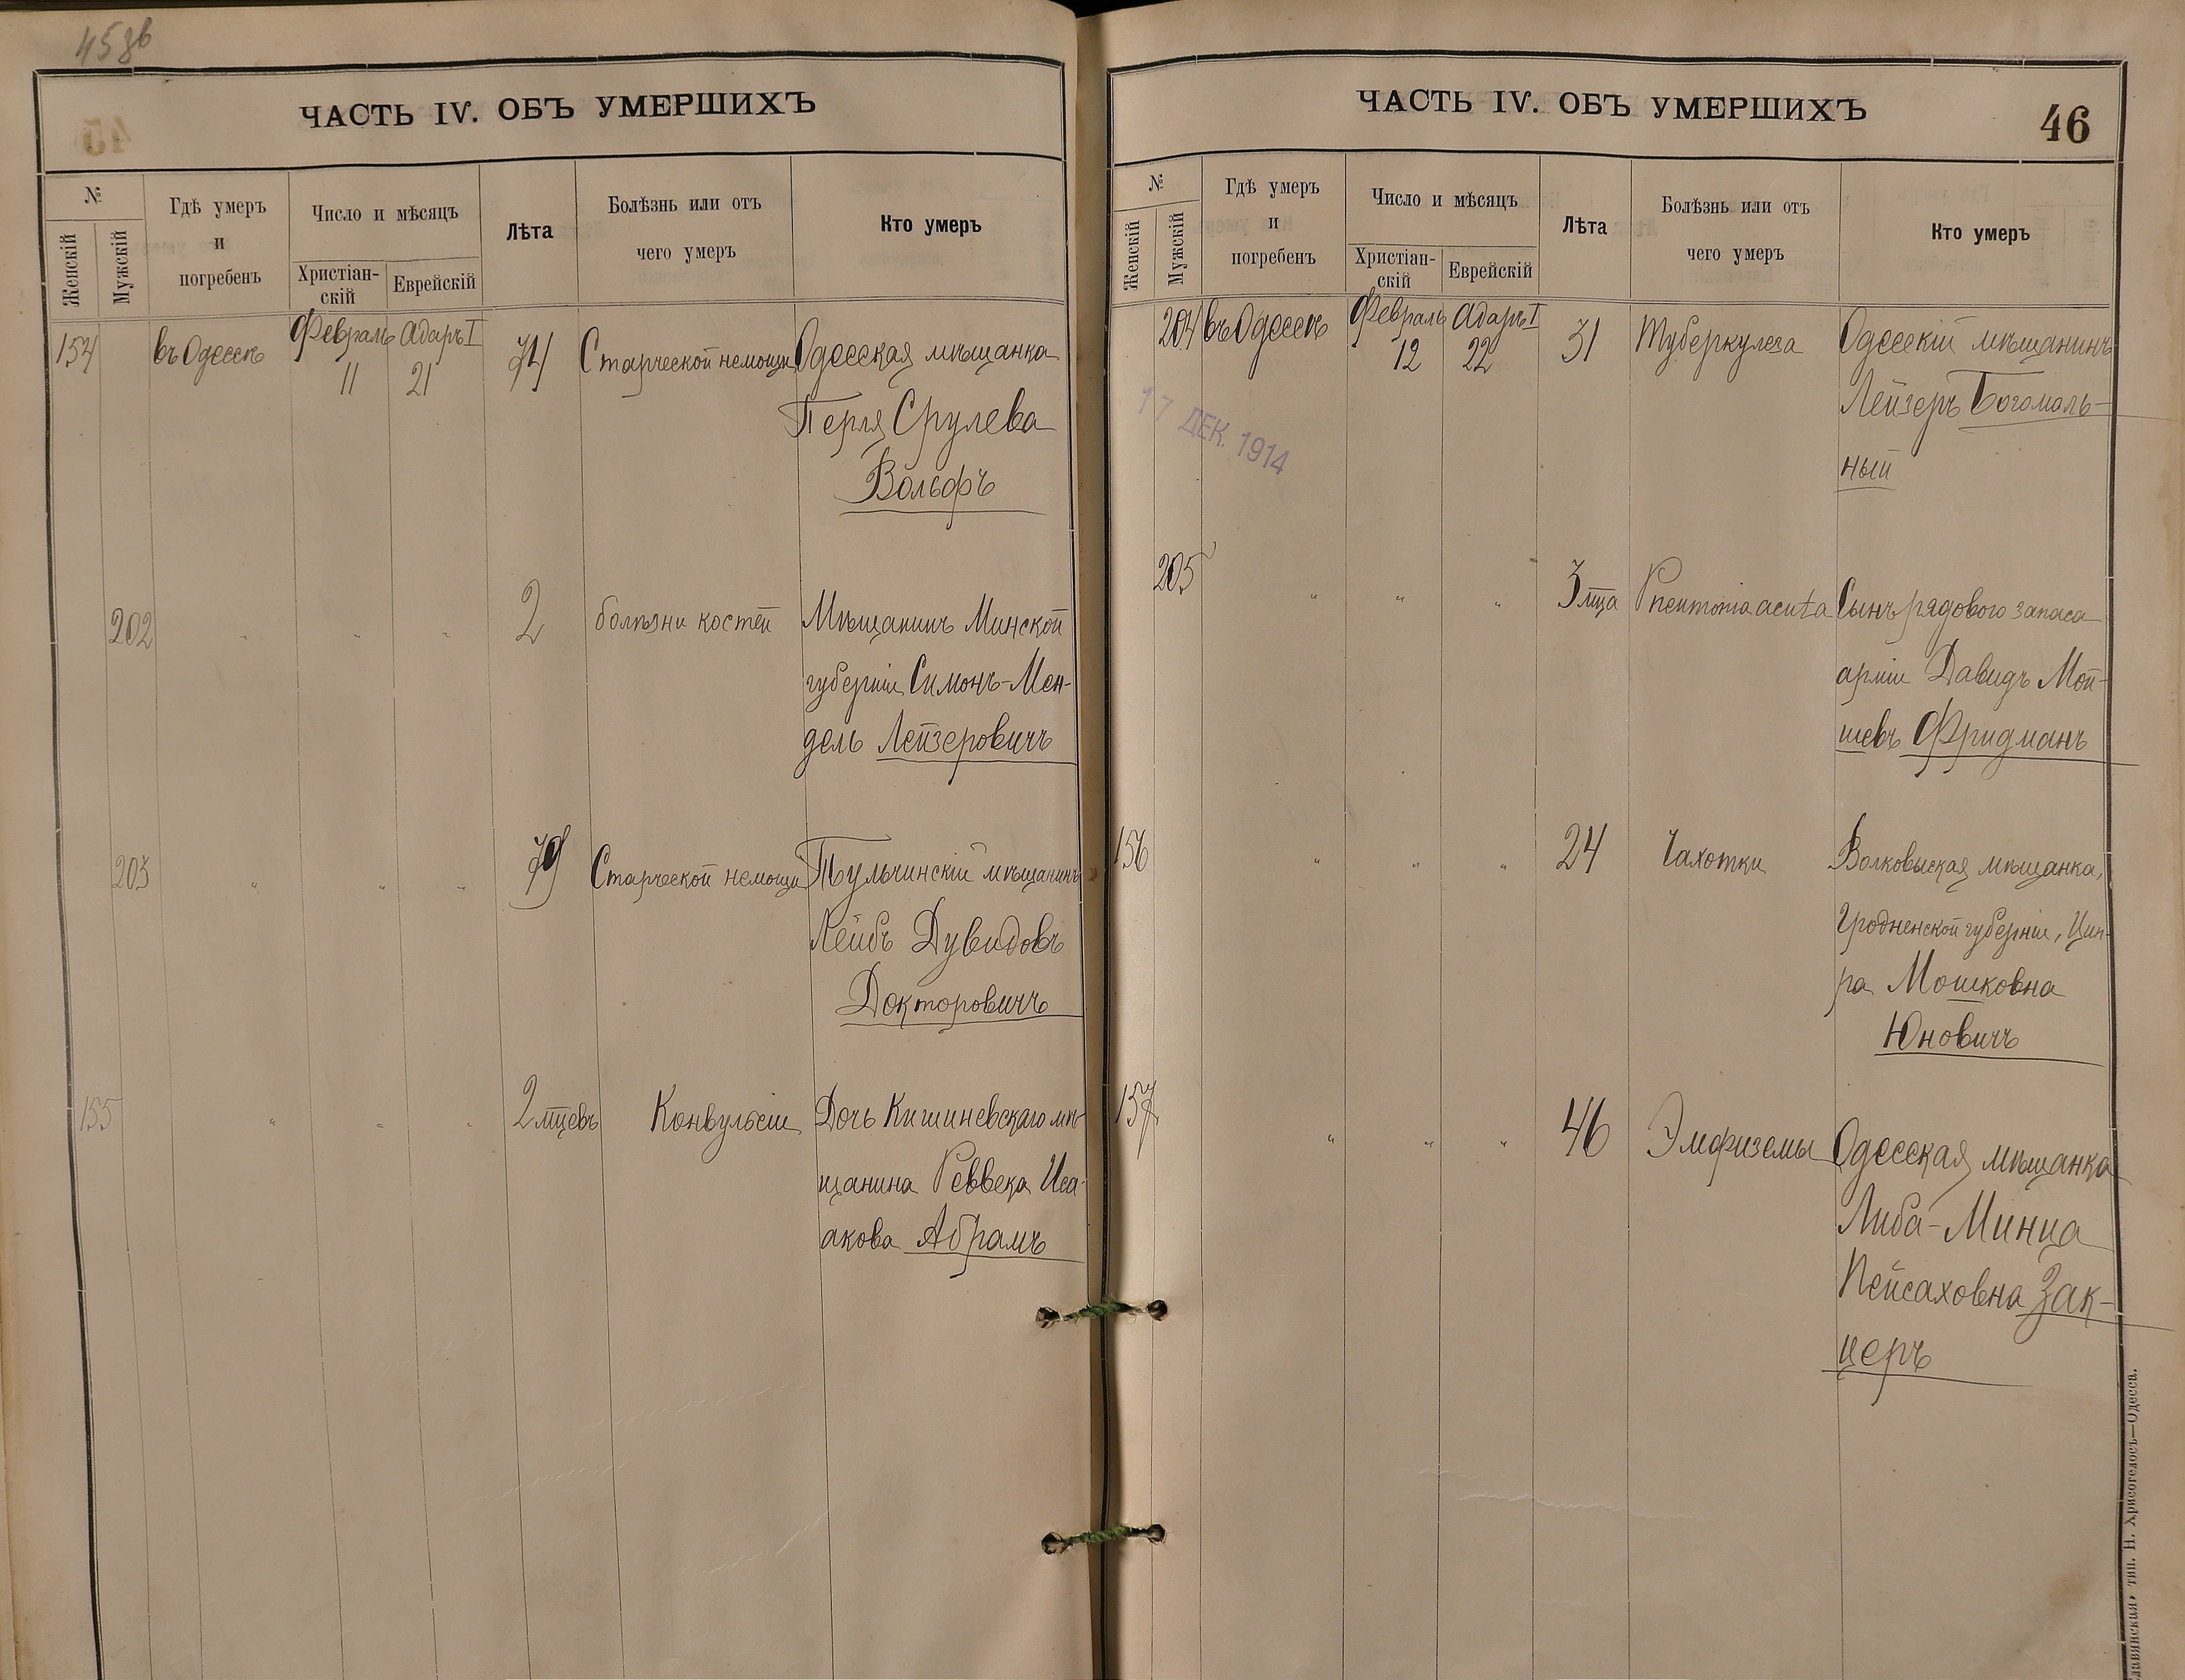 ЧАСТЬ IV. ОБЪ УМЕРШИХЪ
№
Женскій
Мужскій
Гдѣ умеръ
и
погребенъ
Число и мѣсяцъ
Христіан-
скій
Еврейскій
Лѣта
Болѣзнь или отъ
чего умеръ
Кто умеръ
154 въ Одессѣ Февраль 11 Адаръ I 21 71 Старческой немощи Одесская мѣщанка
Перля Срулева
Вольфъ
202 " " " 2 болѣзни костей Мѣщанинъ Минской
губерніи Симонъ-Мен-
дель Лейзеровичъ
203 " " " 79 Старческой немощи Тульчинскій мѣщанинъ
Лейбъ Дувидовъ
Докторовичъ
155 " " " 2 мѣцевъ Конвульсіи Дочь Кишиневскаго мѣ-
щанина Реввека Иса-
акова Абрамъ
ЧАСТЬ IV. ОБЪ УМЕРШИХЪ
46
№
Женскій
Мужскій
Гдѣ умеръ
и
погребенъ
Число и мѣсяцъ
Христіан-
скій
Еврейскій
Лѣта
Болѣзнь или отъ
чего умеръ
Кто умеръ
204 въ Одессѣ Февраль 12 Адаръ I 22 31 Туберкулеза Одесскій мѣщанинъ
Лейзеръ Богомоль-
ный
17 ДЕК. 1914
205 " " " 3 мца Pneumonia acuta Сынъ рядового запаса
арміи Давидъ Мой-
шевъ Фридманъ
156 " " " 24 Чахотки Волковыская мѣщанка,
Гродненской губерніи, Цип-
ра Мошковна
Юновичъ
157 " " " 46 Эмфиземы Одесская мѣщанка
Либа-Минца
Пейсаховна Зак-
церъ
тип. Н. Хрисогелосъ—Одесса.